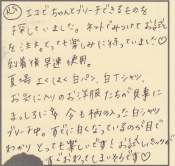 エコでちゃんとブリーチできるものを
探していました。ネットでみつけてお試し
を注文。とっても楽しみに待っていました♡
到着後早速使用。
夏場 よく はく白パン、白Tシャツ、
お気に入りのお洋服たちが見事に
まっしろに 今も柄の入った白シャツ
ブリーチ中。すぐに白くなっているのが目で
わかり とっても嬉しいです! お試し
すぐおわってしまいそうです